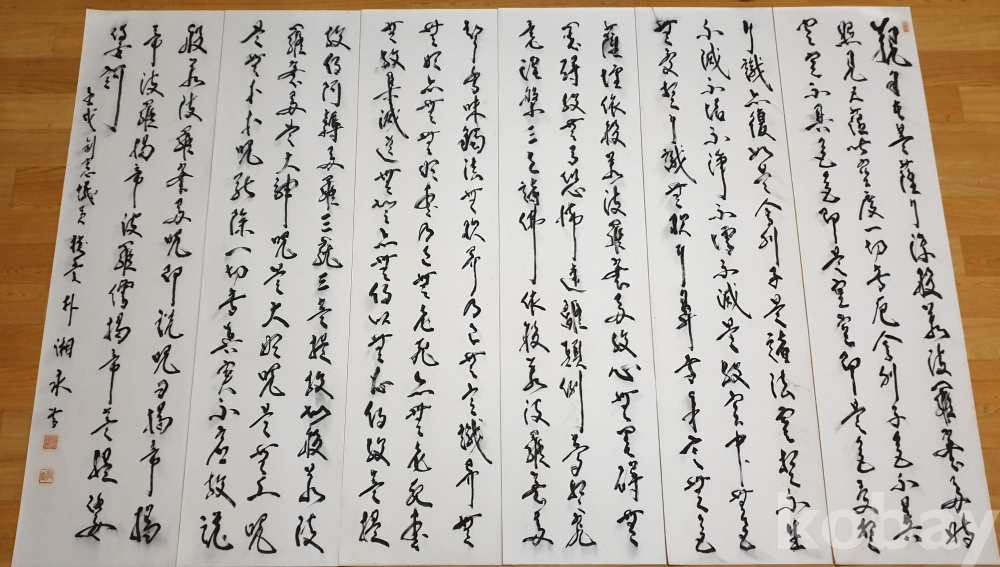 觀自在菩薩行深般若波羅蜜多時
照見五蘊皆空度一切苦厄舍利子色不異
空空不異色色即是空空即是色受想
行識亦復如是舍利子是諸法空相不生
不滅不垢不淨不增不減是故空中無色
無受想行識無眼耳鼻舌身意無色
薩埵依般若波羅蜜多故心無罣礙無
罣礙故無有恐怖遠離顛倒夢想究
竟涅槃三世諸佛依般若波羅蜜多
聲香味觸法無眼界乃至無意識界無
無明亦無無明盡乃至無老死亦無老死盡
無苦集滅道無智亦無得以無所得故菩提
故得阿耨多羅三藐三菩提故知般若波
羅蜜多是大神呪是大明呪是無上呪
是無等等呪能除一切苦真實不虛故說
般若波羅蜜多呪即說呪曰揭帝揭
帝波羅揭帝波羅僧揭帝菩提娑
婆訶
朴湘永
kobay